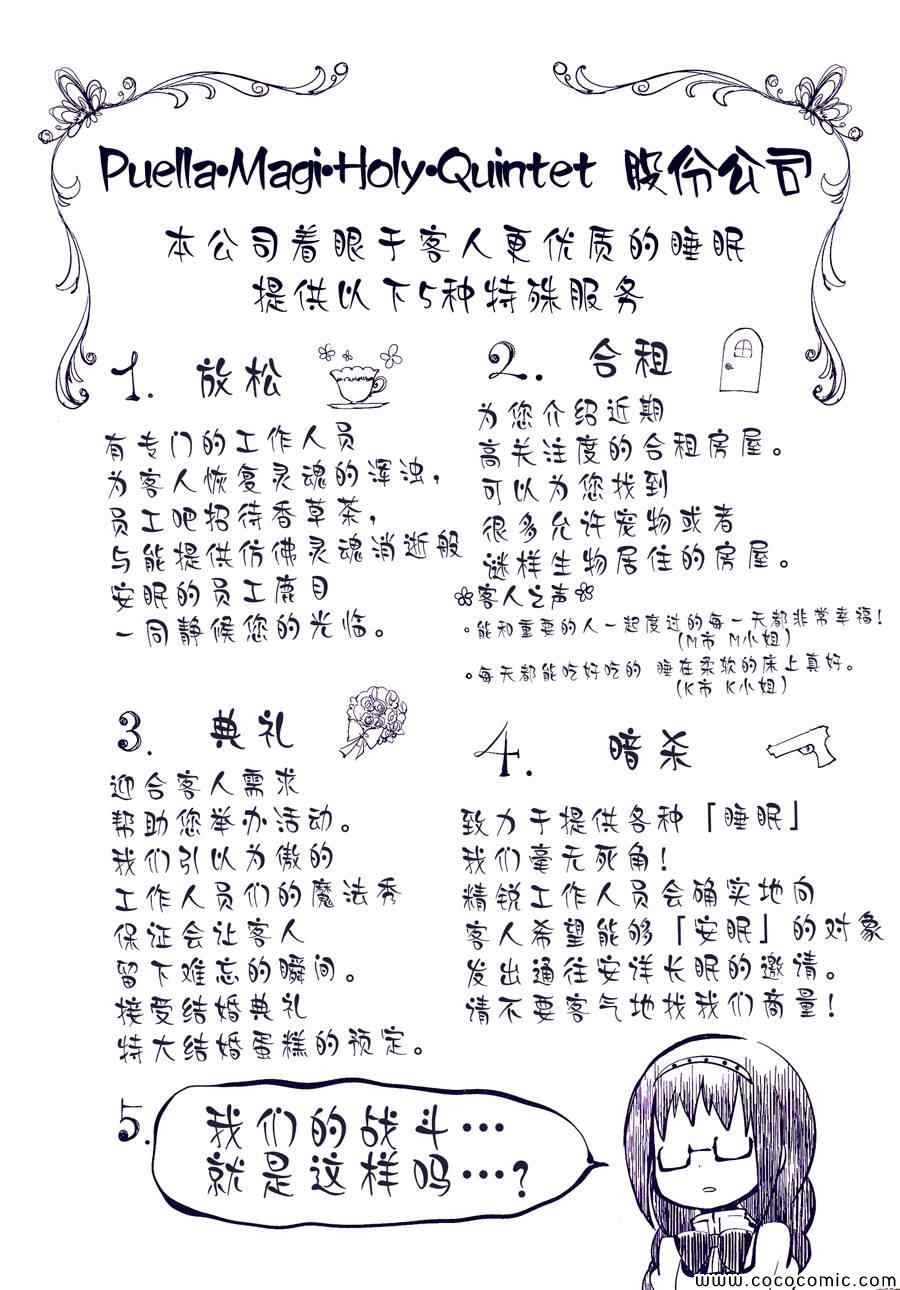 Puella•Magi•Holy•Quintet 股份公司
本公司着眼于客人更优质的睡眠
提供以下5种特殊服务
1. 放松
有专门的工作人员
为客人恢复灵魂的浑浊，
员工吧招待香草茶，
与能提供仿佛灵魂消逝般
安眠的员工鹿目
一同静候您的光临。
2. 合租
为您介绍近期
高关注度的合租房屋。
可以为您找到
很多允许宠物或者
谜样生物居住的房屋。
客人之声
。能和重要的人一起度过的每一天都非常幸福！
(M市 M小姐)
。每天都能吃好吃的 睡在柔软的床上真好。
(K市 K小姐)
3. 典礼
迎合客人需求
帮助您举办活动。
我们引以为傲的
工作人员们的魔法秀
保证会让客人
留下难忘的瞬间。
接受结婚典礼
特大结婚蛋糕的预定。
4. 暗杀
致力于提供各种「睡眠」
我们毫无死角！
精锐工作人员会确实地向
客人希望能够「安眠」的对象
发出通往安详长眠的邀请。
请不要客气地找我们商量！
5.
我们的战斗…
就是这样吗…？
www.cococomic.com